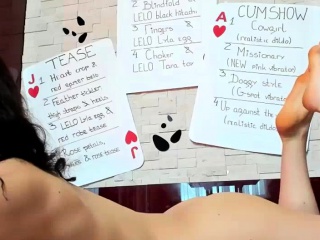 J
TEASE
1 Heart crop &
red garter belt
2 Feather tickler
thigh straps & heels
3 LELO Lyla egg
red robe tease
4 Rose petals,
& rose tease
J
2 Blindfold
LELO black intimate
3 Fingers &
LELO Lyla egg
4 Choker &
LELO Tara
A
CUMSHOW
1 Cowgirl
(realistic dildo)
2 Missionary
(NEW pink vibrator)
3 Doggy style
(G-spot vibrator)
4 Up against the
(realistic dildo)